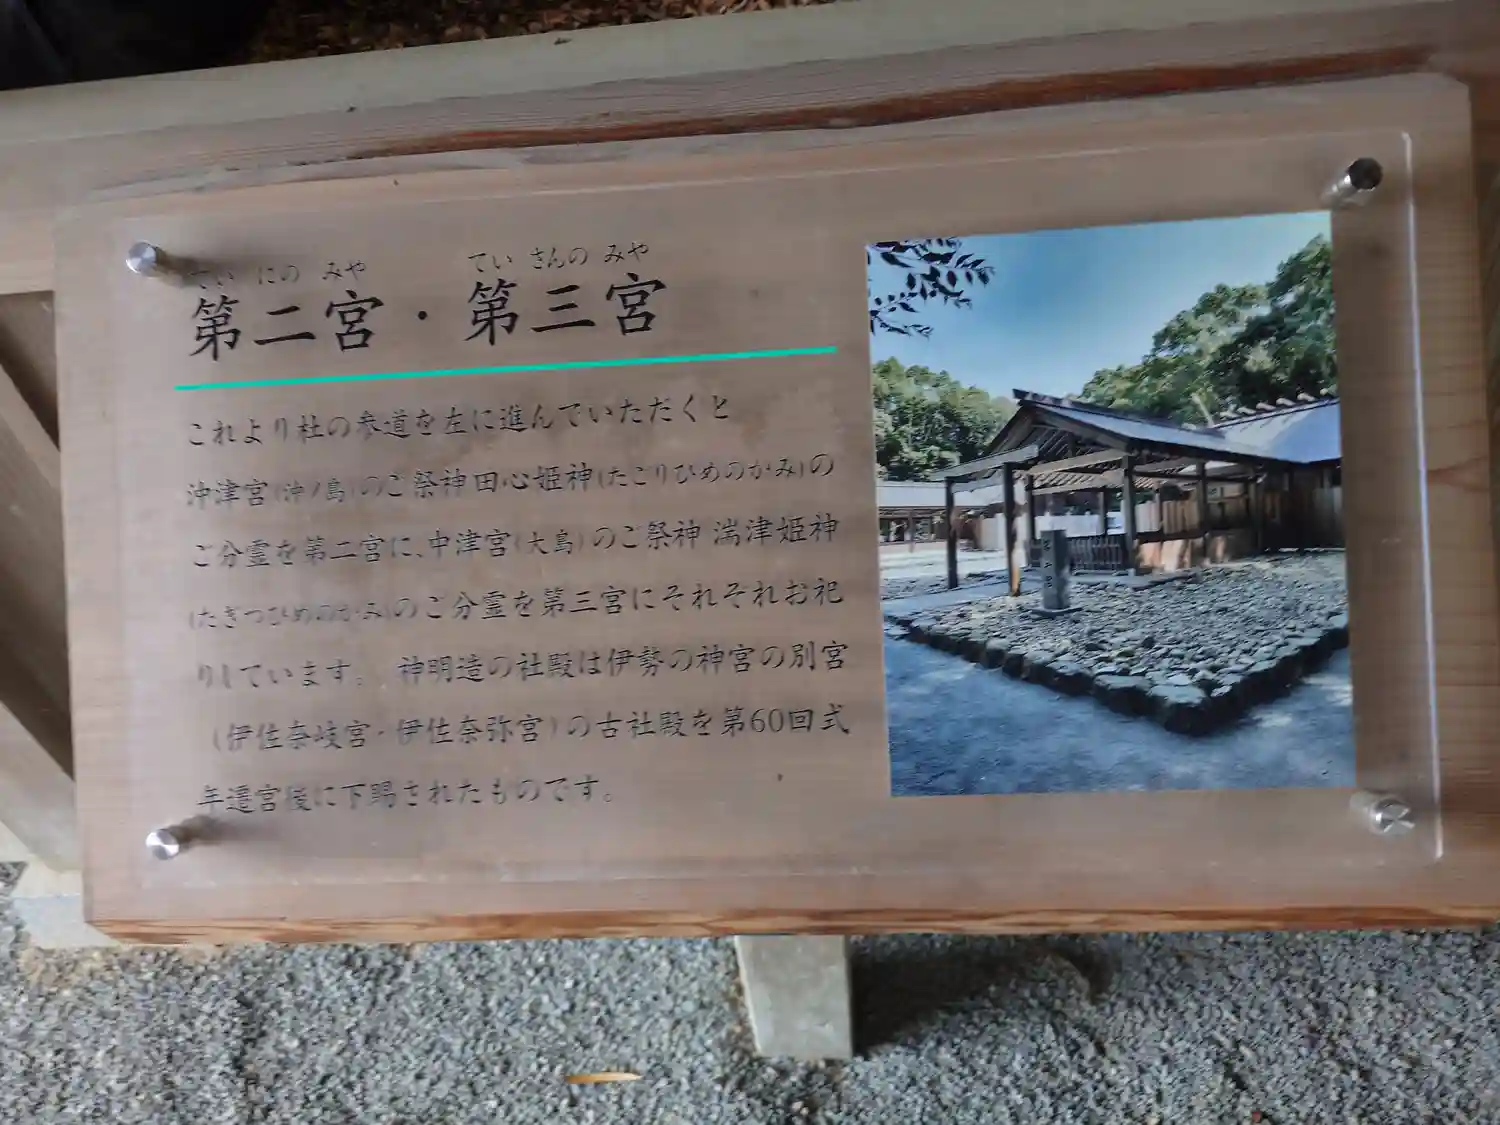 ていにのみや　ていさんのみや
第二宮・第三宮
これより杜の参道を左に進んでいただくと
沖津宮(沖ノ島)のご祭神田心姫神(たごりひめのかみ)の
ご分霊を第二宮に、中津宮(大島)のご祭神 湍津姫神
(たぎつひめのかみ)のご分霊を第三宮にそれぞれお祀
りしています。 神明造の社殿は伊勢の神宮の別宮
(伊佐奈岐宮・伊佐奈弥宮)の古社殿を第60回式
年遷宮後に下賜されたものです。